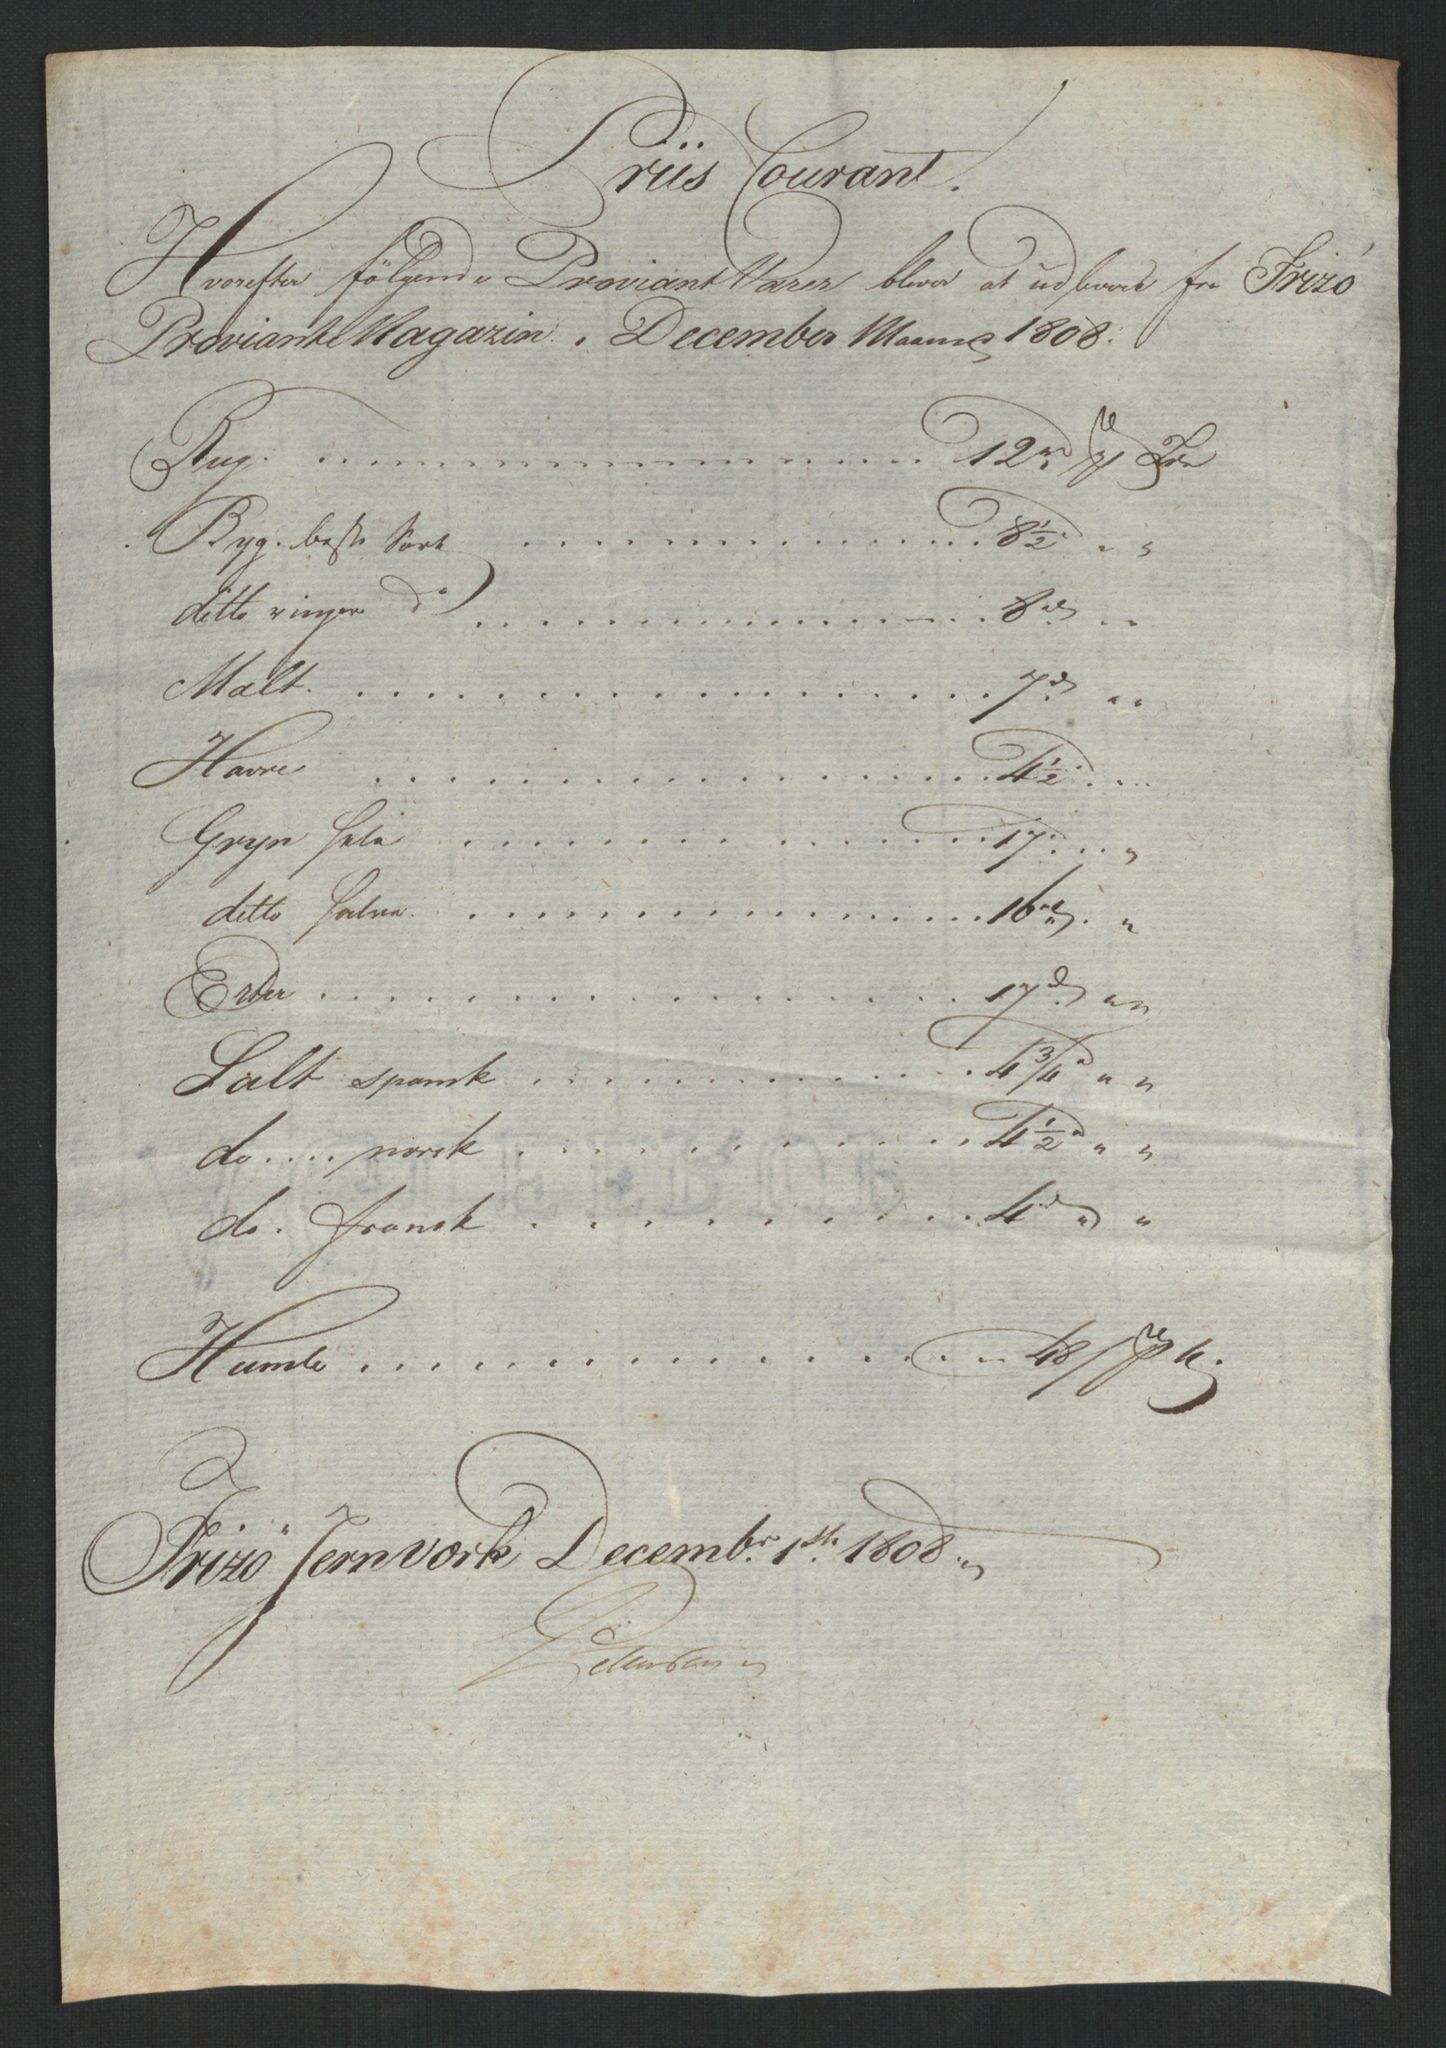 Priis Courant.
Hvorefter følgende Proviant Varer bliver at udleveres fra Frizö
Proviant Magazin i December Maaned 1808.
Rug. 12 rd pr Tde
Byg. beste Sort 8½ " "
ditto ringere do 8 rd " "
Malt. 7 rd " "
Havre 4½ " "
Gryn hele 17 " "
ditto halve 16 rd " "
Erter 17 rd " "
Salt spansk 4¾ " "
do norsk 4½ " "
do. fransk 4 rd " "
Humle 48 s pr
Frizö Jernværk Decembr. 1ste 1808.